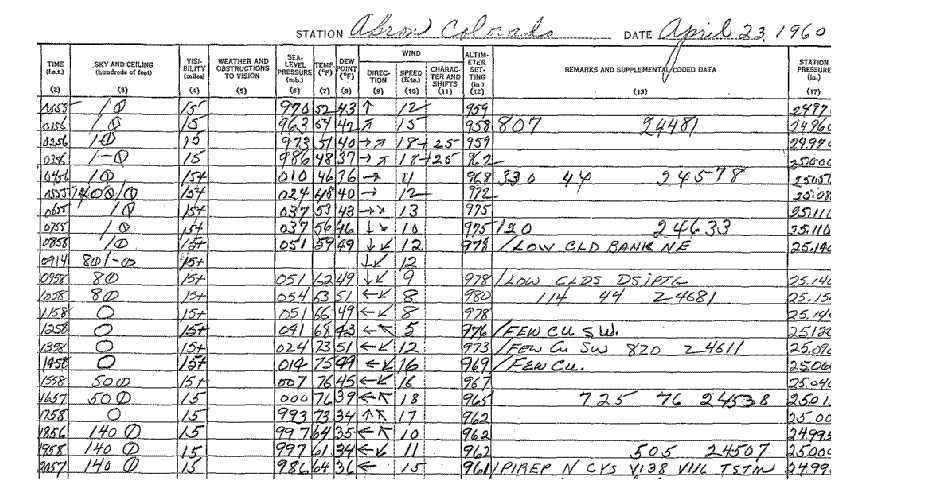 STATION Akron Colorado DATE April 23, 1960
TIME (l.s.t.) (2) SKY AND CEILING (hundreds of feet) (3) VISIBILITY (miles) (4) WEATHER AND OBSTRUCTIONS TO VISION (5) SEA-LEVEL PRESSURE (mb.) (6) TEMP. (°F) (7) DEW POINT (°F) (8) WIND DIRECTION (9) SPEED (Kts.) (10) CHARACTER AND SHIFTS (11) ALTIMETER SETTING (in.) (12) REMARKS AND SUPPLEMENTAL CODED DATA (13) STATION PRESSURE (in.) (17)
15 970 52 43 ↑ 12 959
0156 15 963 54 42 ↗ 15 958 807 24481
0256 15 973 51 40 →↗ 18+25 959
15 986 48 37 →↗ 18+25 962
15+ 010 46 36 → 11 968 330 44 24578
15+ 024 48 40 → 12 972
15+ 037 53 43 →↘ 13 975 25.11
0755 15+ 037 56 46 ↓↘ 10 975 120 24633 25.110
0858 15+ 051 59 49 ↓↙ 12 978 /LOW CLD BANK NE 25.14
0914 15+ ↓↙ 12
0958 8⦶ 15+ 051 62 49 ↓↙ 9 978 /LOW CLDS DSIPTG 25.14
1058 8⦶ 15+ 054 63 51 ←↙ 8 980 114 44 24681 25.15
1158 ○ 15+ 051 66 49 ←↙ 8 978 25.14
1258 ○ 15+ 041 68 43 ←↖ 5 976 /FEW CU SW. 25.12
1358 ○ 15+ 024 73 51 ←↙ 12 973 /FEW CU SW 820 24611 25.09
1458 ○ 15+ 014 75 49 ←↙ 16 969 /FEW CU. 25.06
1558 50⦶ 15+ 007 76 45 ←↙ 16 967 25.04
1657 50⦶ 15 000 76 39 ←↖ 18 965 725 76 24538 25.01
1758 ○ 15 993 73 34 ↑↖ 17 962 25.00
1856 140⦶ 15 997 64 35 ←↖ 10 962 24.995
1958 140⦶ 15 997 61 34 ←↙ 11 962 505 24507 25.00
2057 140⦶ 15 986 64 36 ← 15 961 /PIREP N CYS V138 V116 TSTM 24.99